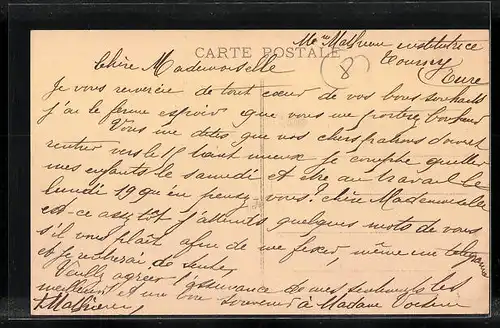 Mme Mathieu institutrice
CARTE POSTALE
Tourny
Eure
8
Chère Mademoiselle
Je vous remercie de tout cœur de vos bons souhaits
j'ai le ferme espoir que vous me portrez bonheur
Vous me dites que vos chers patrons doivent
rentrer vers le 15 tant mieux je compte quitter
mes enfants le samedi et être au travail le
lundi 19 qu'en pensez-vous? chère Mademoiselle
est-ce assez tôt j'attends quelques mots de vous
s'il vous plaît afin de me fixer, même un télégramme
et je rentrerai de suite,
Veuillez agréer l'assurance de mes sentiments les
meilleurs et un bon souvenir à Madame